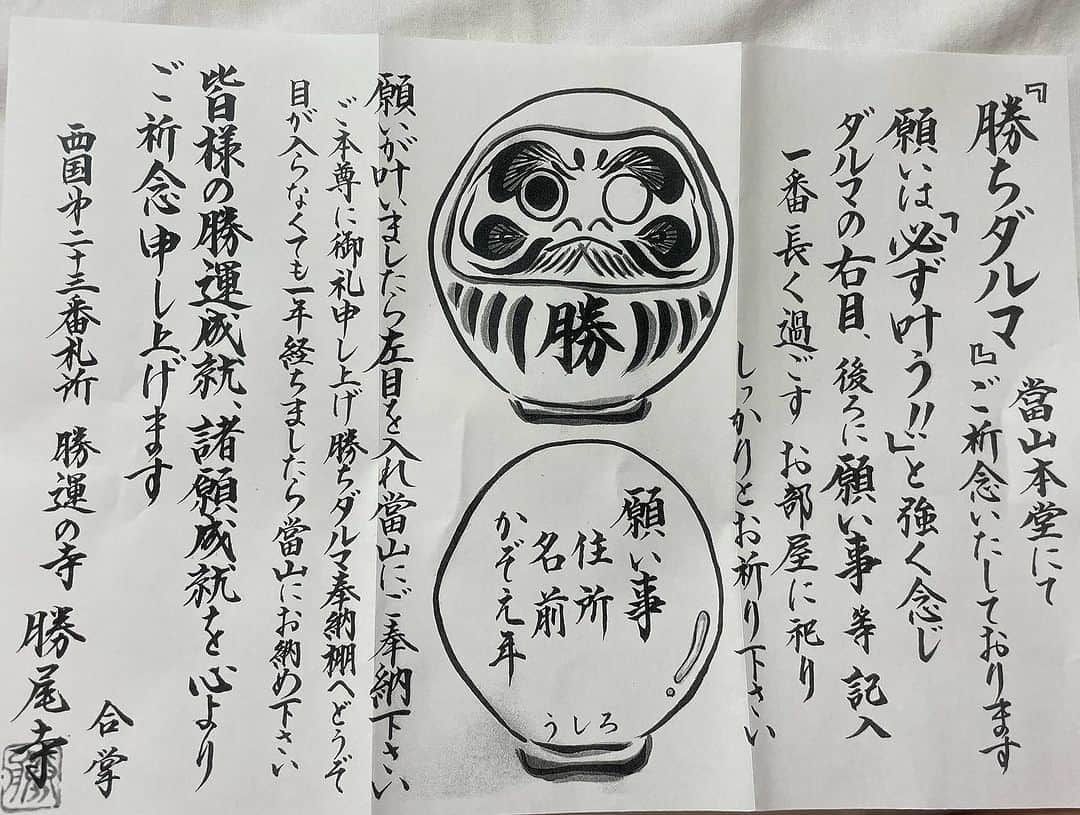 當山本堂にて
『勝ちダルマ』ご祈念いたしております
願いは「必ず叶う!!」と強く念じ
ダルマの右目、後ろに願い事等記入
一番長く過ごすお部屋に祀り
しっかりとお祈り下さい
勝
願い事
住所
名前
かぞえ年
うしろ
願いが叶いましたら左目を入れ當山にご奉納下さい
ご本尊に御礼申し上げ勝ちダルマ奉納棚へどうぞ
目が入らなくても一年経ちましたら當山にお納め下さい
皆様の勝運成就、諸願成就を心より
ご祈念申し上げます
西国第二十三番札所 勝運の寺 勝尾寺
合掌